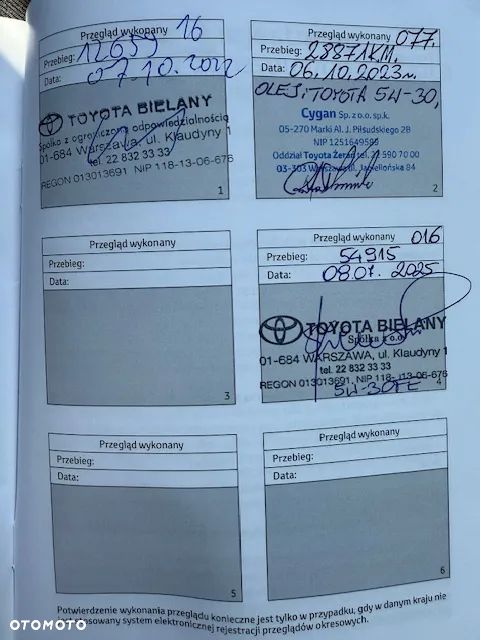 Przegląd wykonany 16
Przebieg: 12659
Data: 07.10.2022
TOYOTA BIELANY
Spółka z ograniczoną odpowiedzialnością
01-684 Warszawa, ul. Klaudyny 1
tel. 22 832 33 33
REGON 013013691 NIP 118-13-06-676
1
Przegląd wykonany 077.
Przebieg: 28871KM.
Data: 06.10.2023r.
OLEJ: TOYOTA 5W-30,
Cygan Sp. z o.o. sp.k.
05-270 Marki Al. J. Piłsudskiego 2B
NIP 1251649589
Oddział Toyota Żerań tel. 22 590 70 00
03-303 Warszawa ul. Jagiellońska 84
2
Przegląd wykonany
Przebieg:
Data:
3
Przegląd wykonany 016
Przebieg: 54915
Data: 08.07.2025
TOYOTA BIELANY
Spółka z o.o.
01-684 WARSZAWA, ul. Klaudyny 1
tel. 22 832 33 33
REGON 013013691, NIP 118-13-06-676
5W-30FE
4
Przegląd wykonany
Przebieg:
Data:
5
Przegląd wykonany
Przebieg:
Data:
6
Potwierdzenie wykonania przeglądu konieczne jest tylko w przypadku, gdy w danym kraju nie
jest stosowany system elektronicznej rejestracji przeglądów okresowych.
OTOMOTO